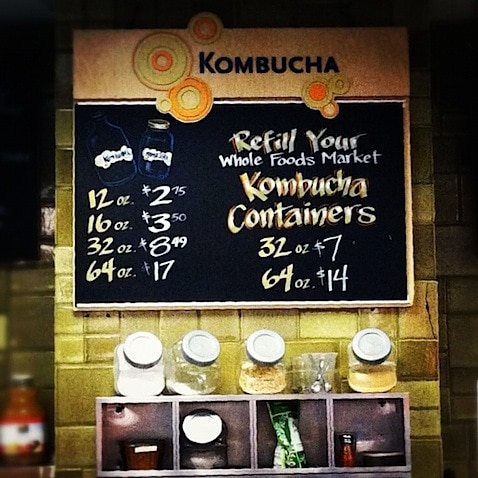 KOMBUCHA
12 oz. $2.75
16 oz. $3.50
32 oz. $8.49
64 oz. $17
Refill Your
Whole Foods Market
Kombucha
Containers
32 oz. $7
64 oz. $14